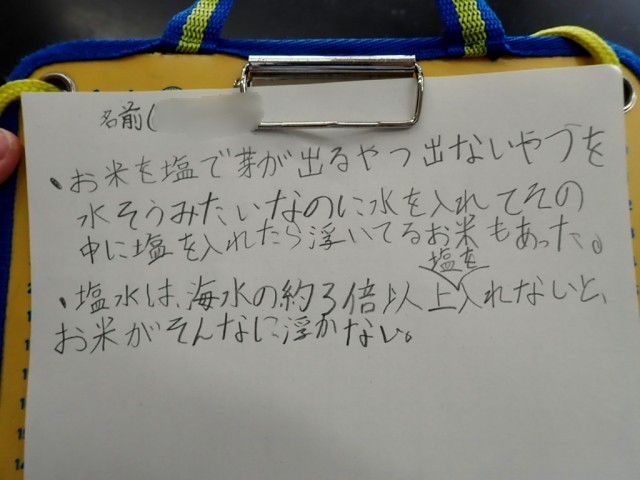 名前(
・お米を塩で芽が出るやつ出ないやつを
水そうみたいなのに水を入れてその
中に塩を入れたら浮いてるお米もあった。
塩を
・塩水は、海水の約3倍以上入れないと、
お米がそんなに浮かない。